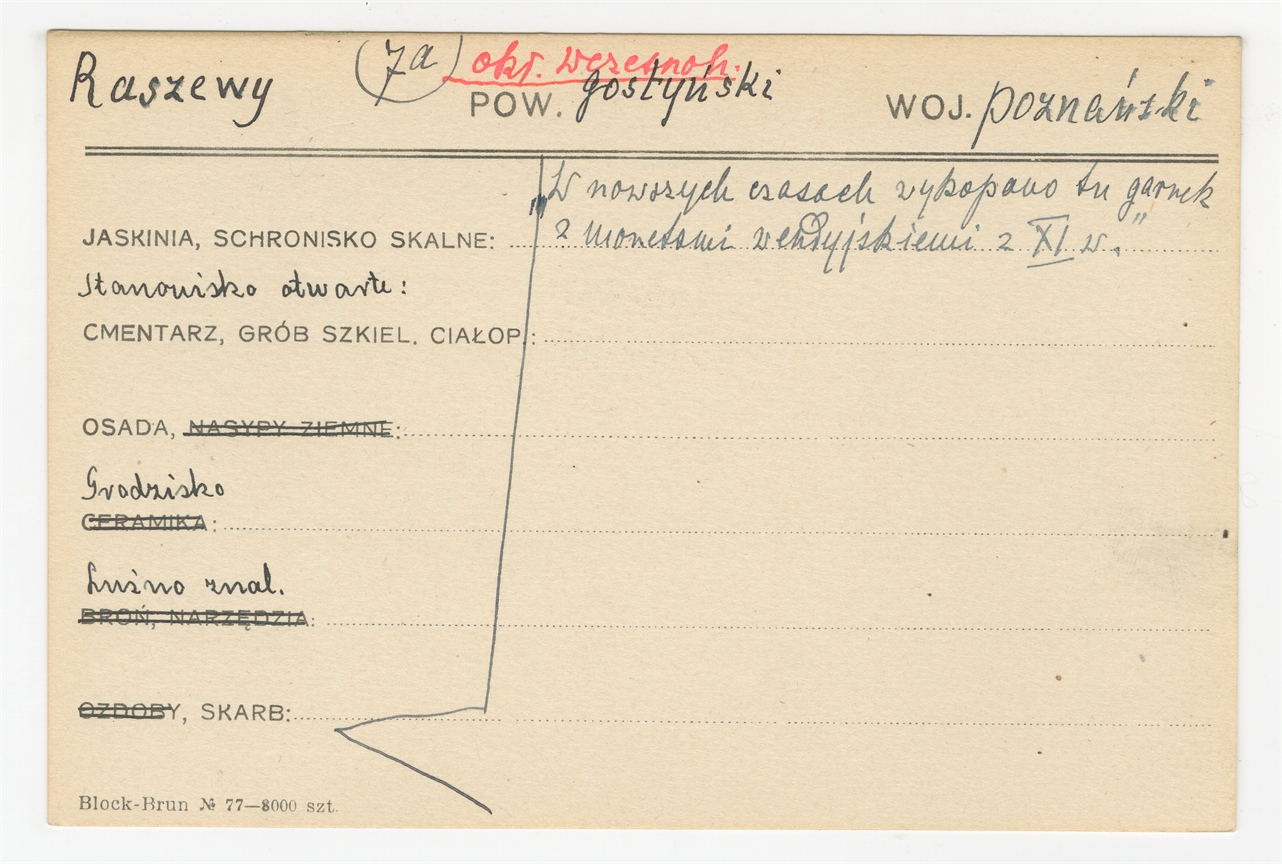 Raszewy (7a) okr. wczesnoh.
POW. gostyński WOJ. poznański
„W nowszych czasach wykopano tu garnek
JASKINIA, SCHRONISKO SKALNE: z monetami wendyjskiemi z XI w."
Stanowisko otwarte:
CMENTARZ, GRÓB SZKIEL. CIAŁOP.:
OSADA, NASYPY ZIEMNE:
Grodzisko
CERAMIKA:
Luźno znal.
BROŃ, NARZĘDZIA:
OZDOBY, SKARB:
Block-Brun № 77—8000 szt.